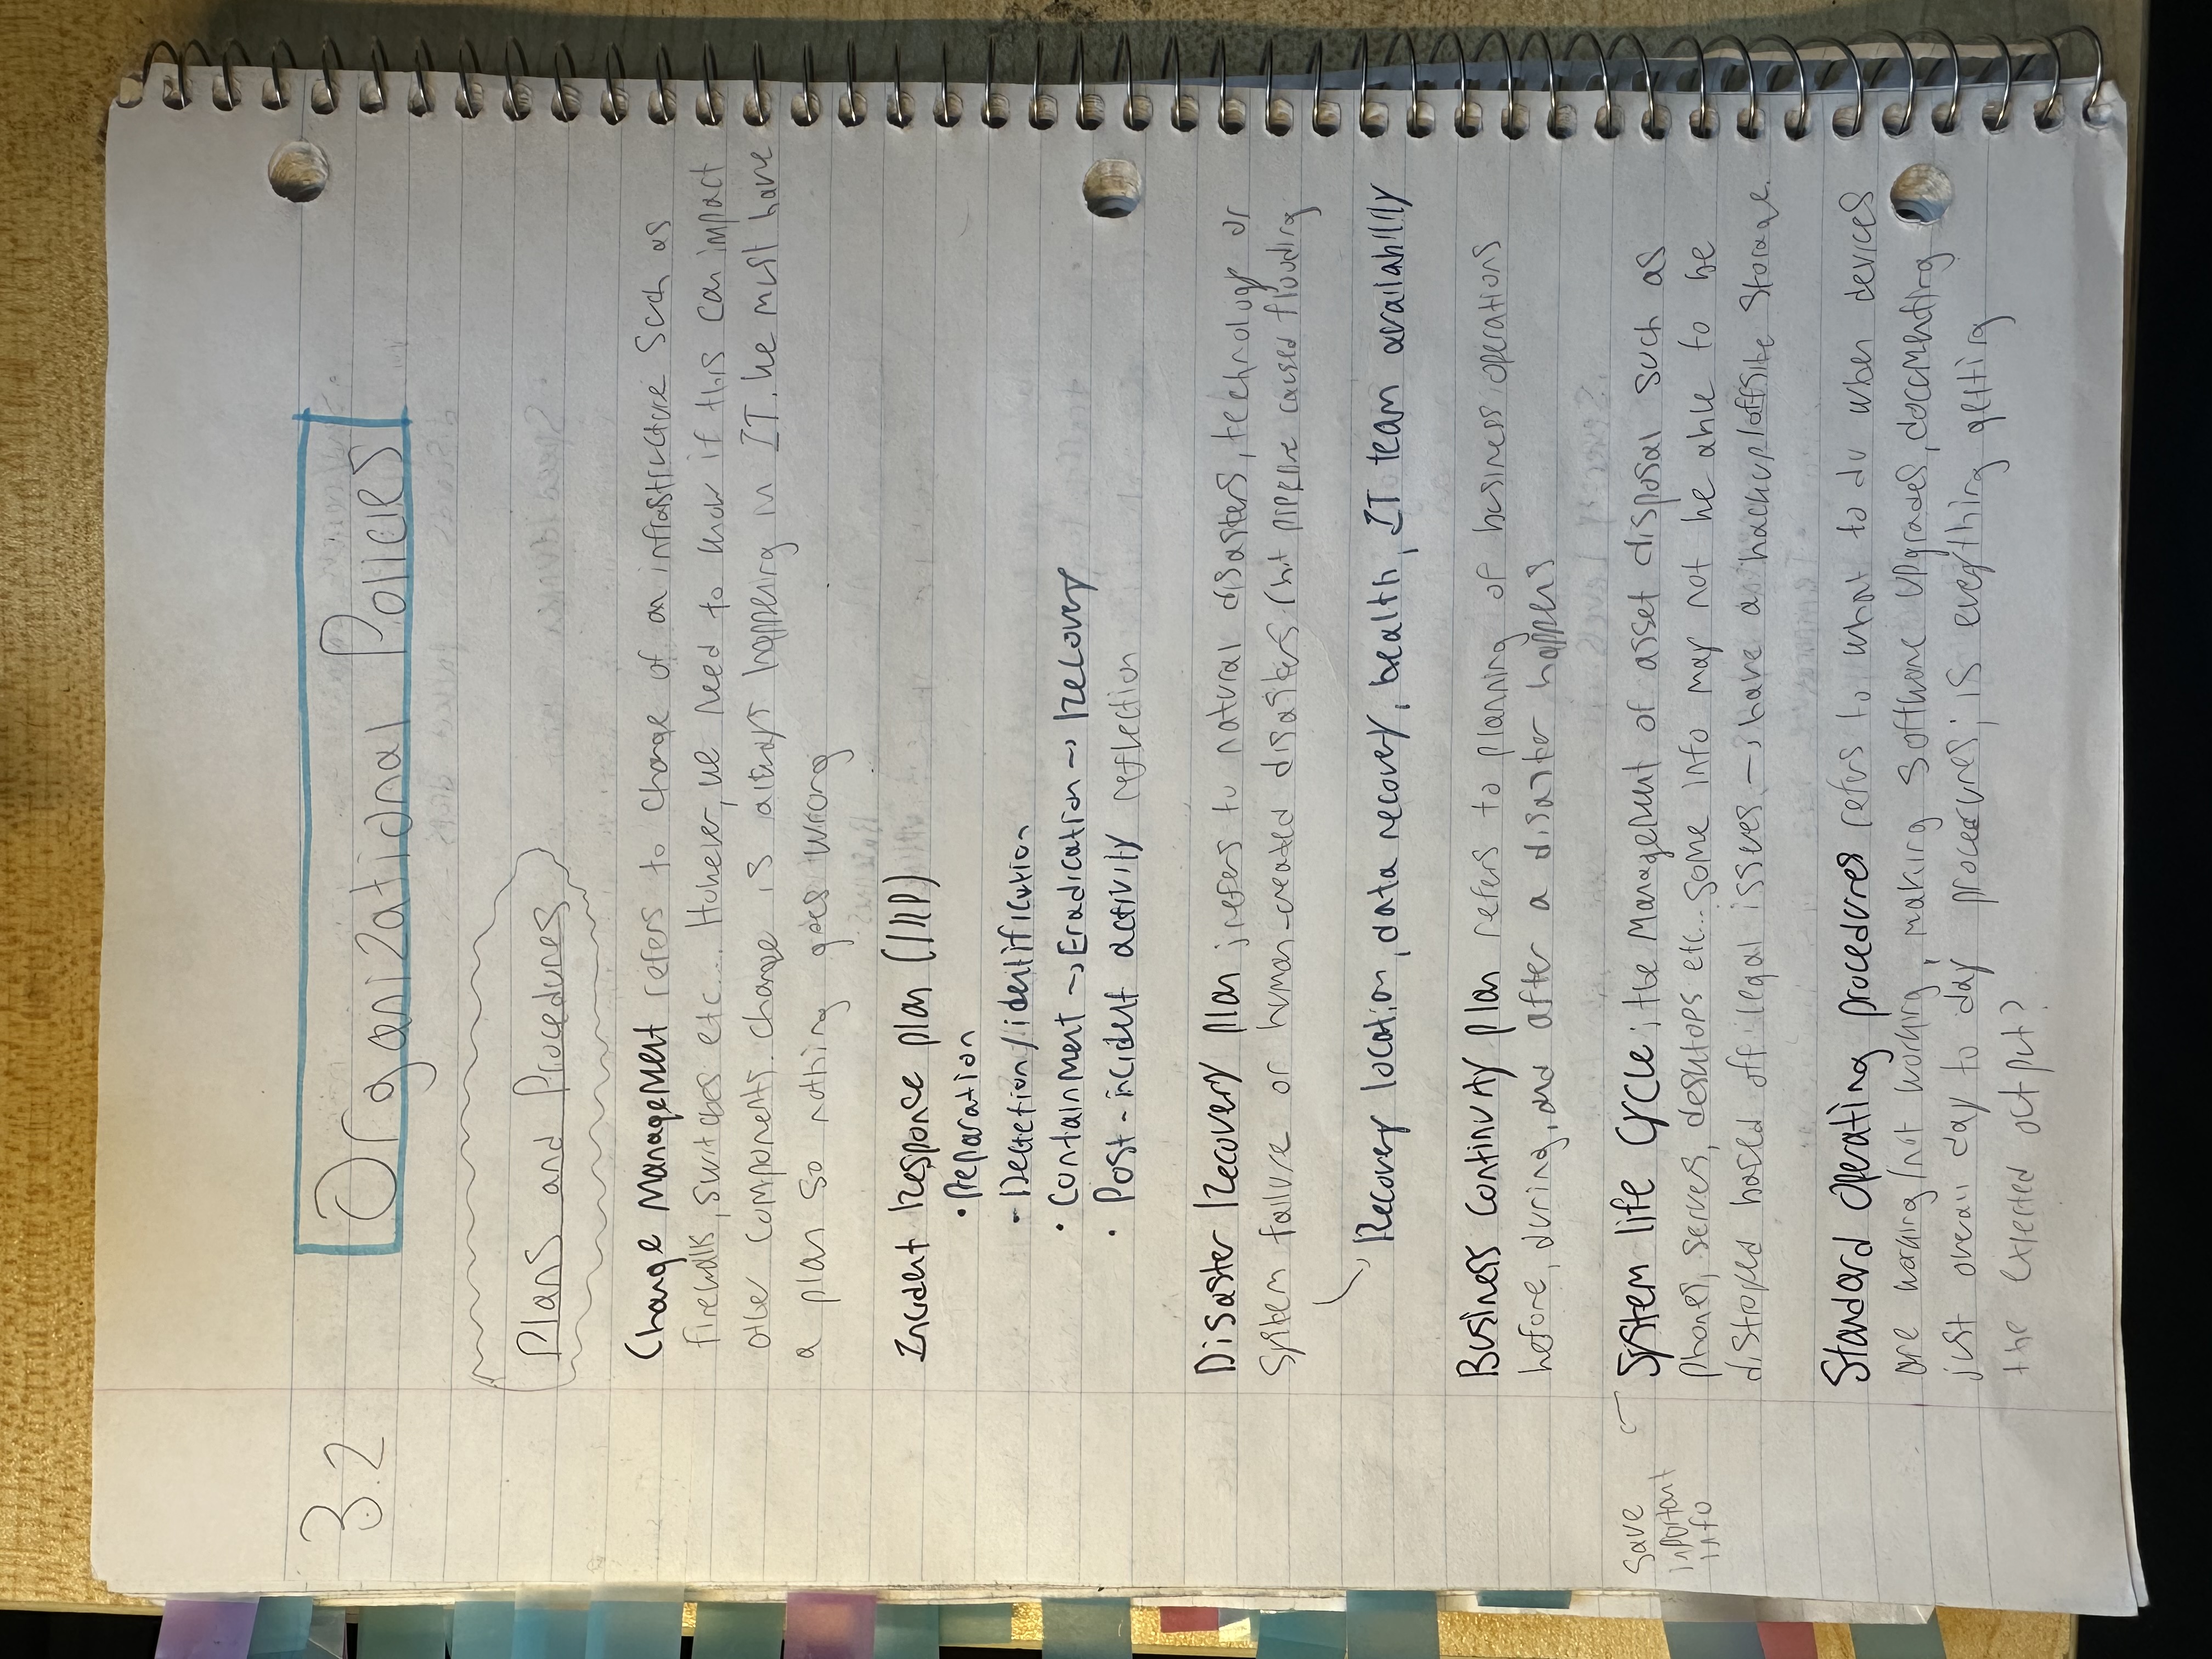 3.2 Organizational Policies
Plans and Procedures
Change Management refers to change of an infrastructure such as
firewalls, switches etc... However, we need to know if this can impact
other components. Change is always happening in IT. We must have
a plan so nothing goes wrong
Incident Response plan (IRP)
• Preparation
- Detection/identification
• Containment → Eradication → Recovery
• Post-incident activity reflection
Disaster Recovery plan ; refers to natural disasters, technology or
system failure or human-created disasters (hit pipeline caused flooding
Recovery location, data recovery, health, IT team availability
Business continuity plan refers to planning of business operations
before, during, and after a disaster happens
Save
important
info
System life cycle ; the management of asset disposal such as
phones, serves, desktops etc... some info may not be able to be
distroyed based off legal issues → have a backup/offsite storage.
Standard operating procedures refers to what to do when devices
are working/not working, making software upgrades, documenting
just overall day to day procedures; is everything getting
the expected output?